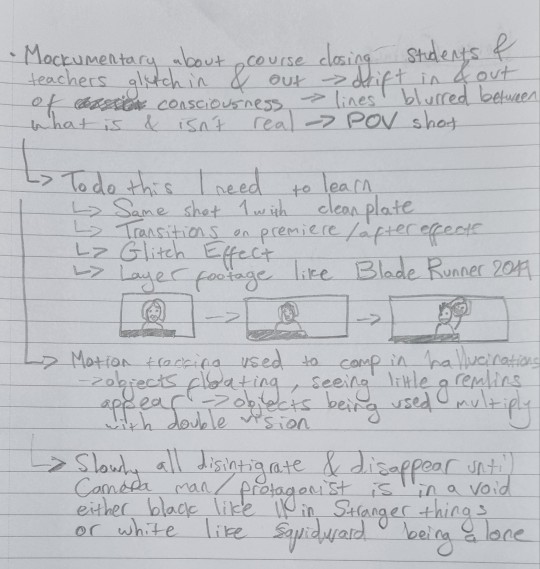 • Mockumentary about course closing students &
teachers glitch in & out → drift in & out
of consciousness → lines blurred between
what is & isn't real → POV shot
↳ To do this I need to learn
↳ Same shot 1 with clean plate
↳ Transitions on premiere / after effects
↳ Glitch Effect
↳ Layer footage like Blade Runner 2049
→ →
↳ Motion tracking used to comp in hallucinations
→ objects floating, seeing little gremlins
appear → objects being used multiply
with double vision
↳ Slowly all disintigrate & disappear until
Camera man / protagonist is in a void
either black like 11 in Stranger things
or white like Squidward being alone